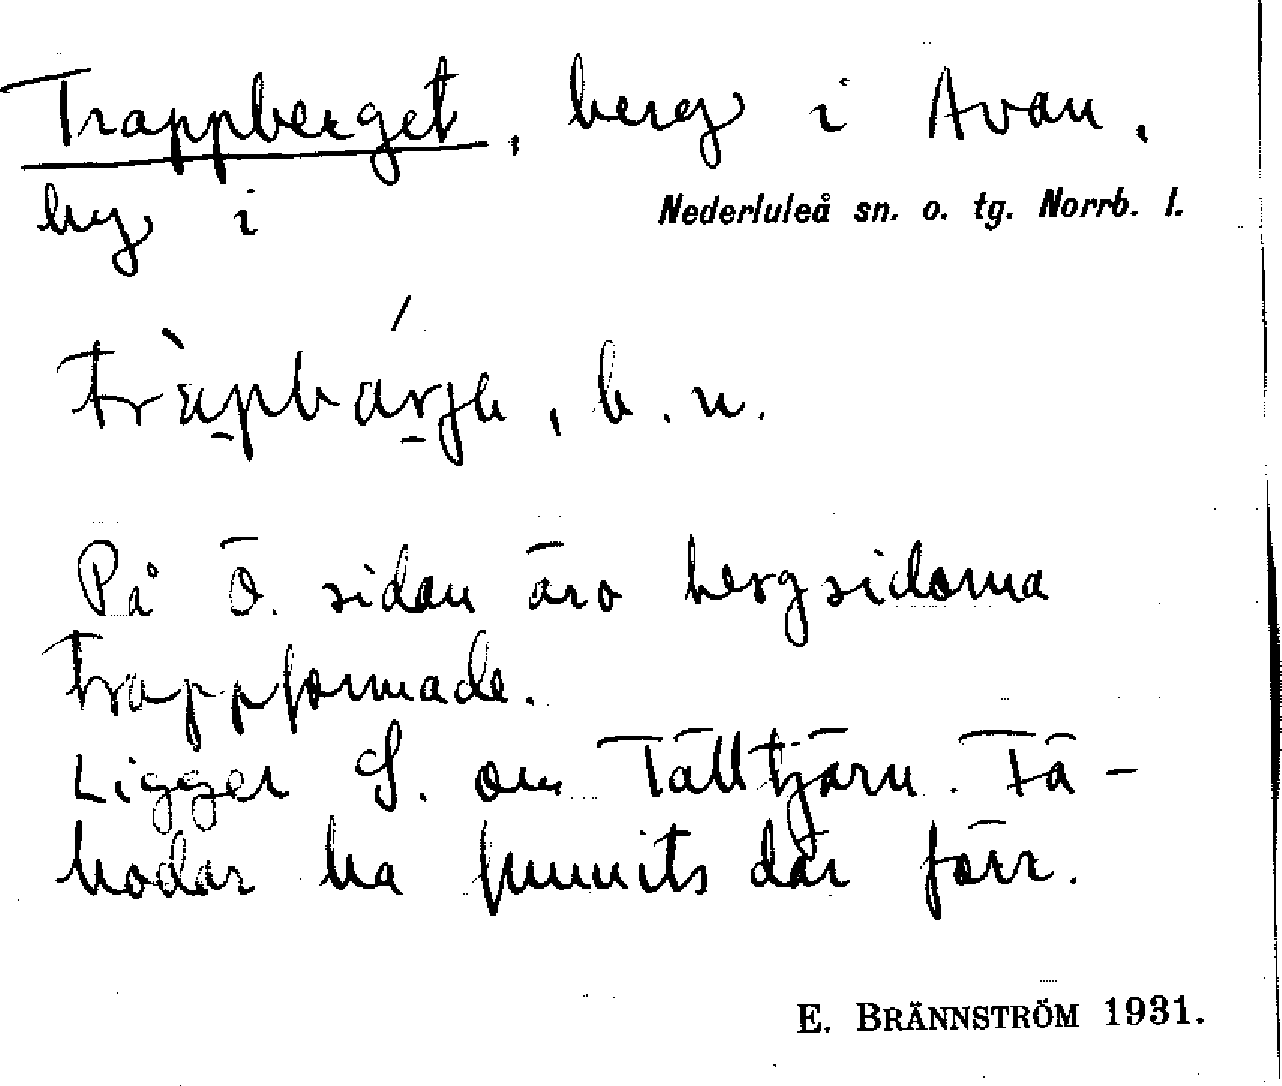 Trappberget, berg i Avan,
by i Nederluleå sn. o. tg. Norrb. l.
b. n.
På Ö. sidan äro bergsidorna
trappformade.
Ligger S. om Tälltjärn. Fä-
bodar ha funnits där förr.
E. BRÄNNSTRÖM 1931.